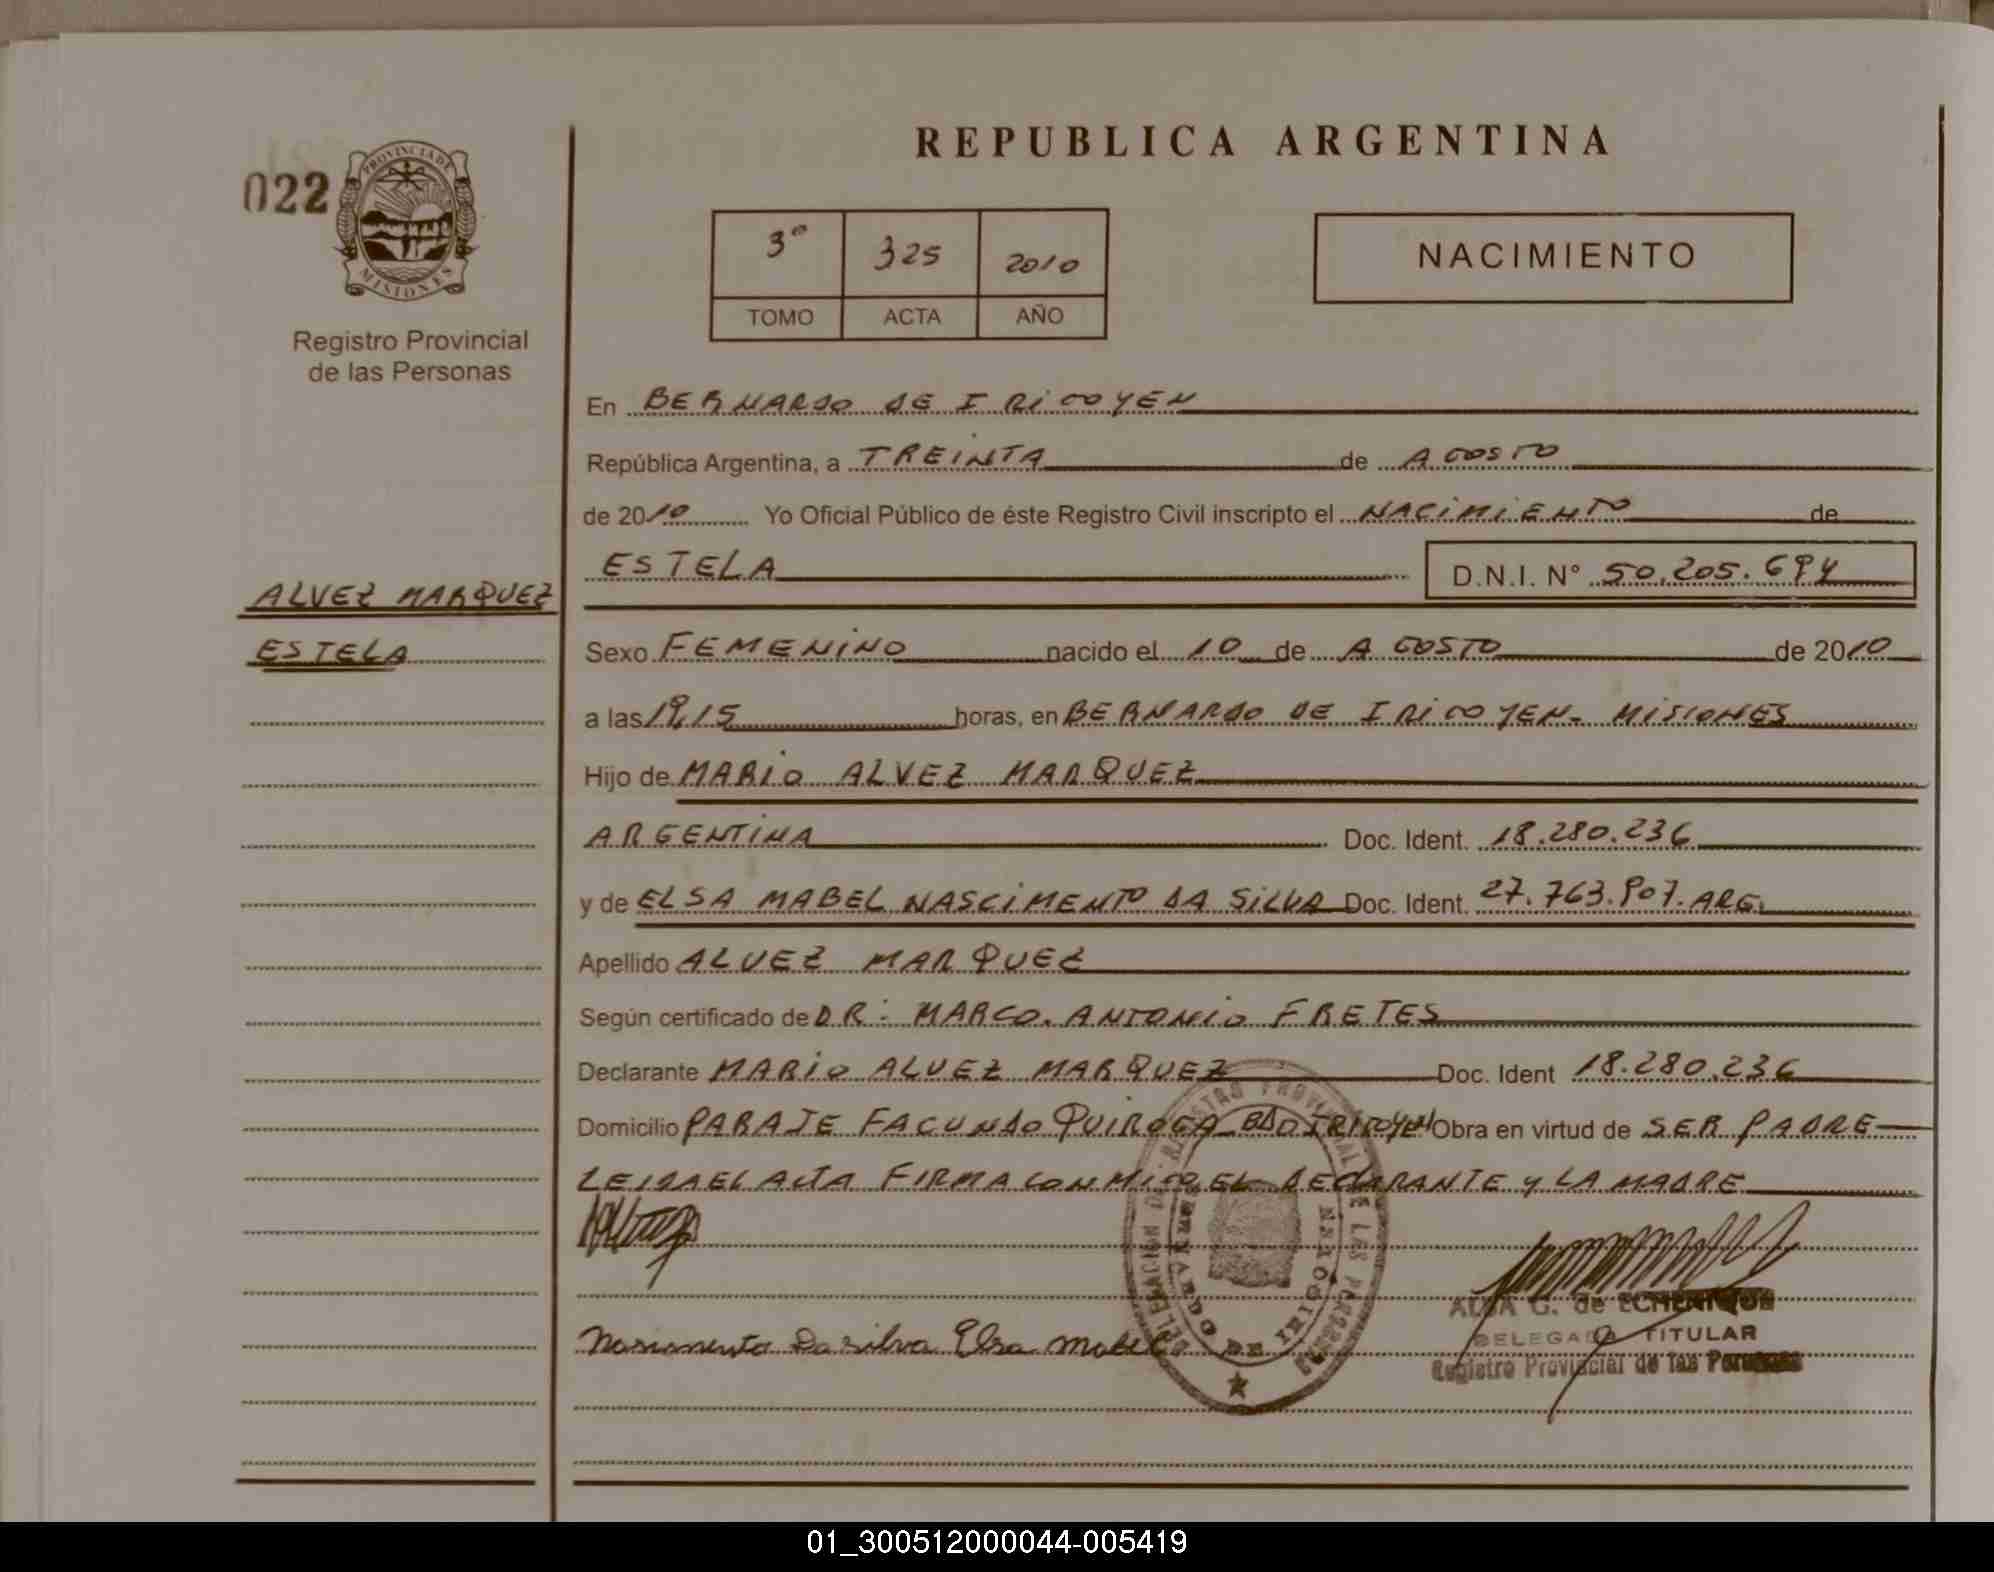 REPUBLICA ARGENTINA
022
PROVINCIA DE
MISIONES
Registro Provincial
de las Personas
3º 325 2010
TOMO ACTA AÑO
NACIMIENTO
En BERNARDO DE IRIGOYEN
República Argentina, a TREINTA de AGOSTO
de 2010 Yo Oficial Público de éste Registro Civil inscripto el NACIMIENTO de
ESTELA D.N.I. Nº 50.205.694
ALVEZ MARQUEZ
ESTELA
Sexo FEMENINO nacido el 10 de AGOSTO de 2010
a las 19,15 horas, en BERNARDO DE IRIGOYEN- MISIONES
Hijo de MARIO ALVEZ MARQUEZ
ARGENTINA Doc. Ident. 18.280.236
y de ELSA MABEL NASCIMENTO DA SILVA Doc. Ident. 27.763.907. ARG.
Apellido ALVEZ MARQUEZ
Según certificado de DR: MARCO. ANTONIO FRETES
Declarante MARIO ALVEZ MARQUEZ Doc. Ident 18.280.236
Domicilio PARAJE FACUNDO QUIROGA BDO IRIGOYEN Obra en virtud de SER PADRE
LEIDA EL ACTA FIRMA CONMIGO EL DECLARANTE Y LA MADRE
Nasimento Da silva Elsa Mabel
DELEGACIÓN DEL REGISTRO PROVINCIAL DE LAS PERSONAS
DE IRIGOYEN
ALBA G. de ECHENIQUE
DELEGADA TITULAR
Registro Provincial de las Personas
01_300512000044-005419